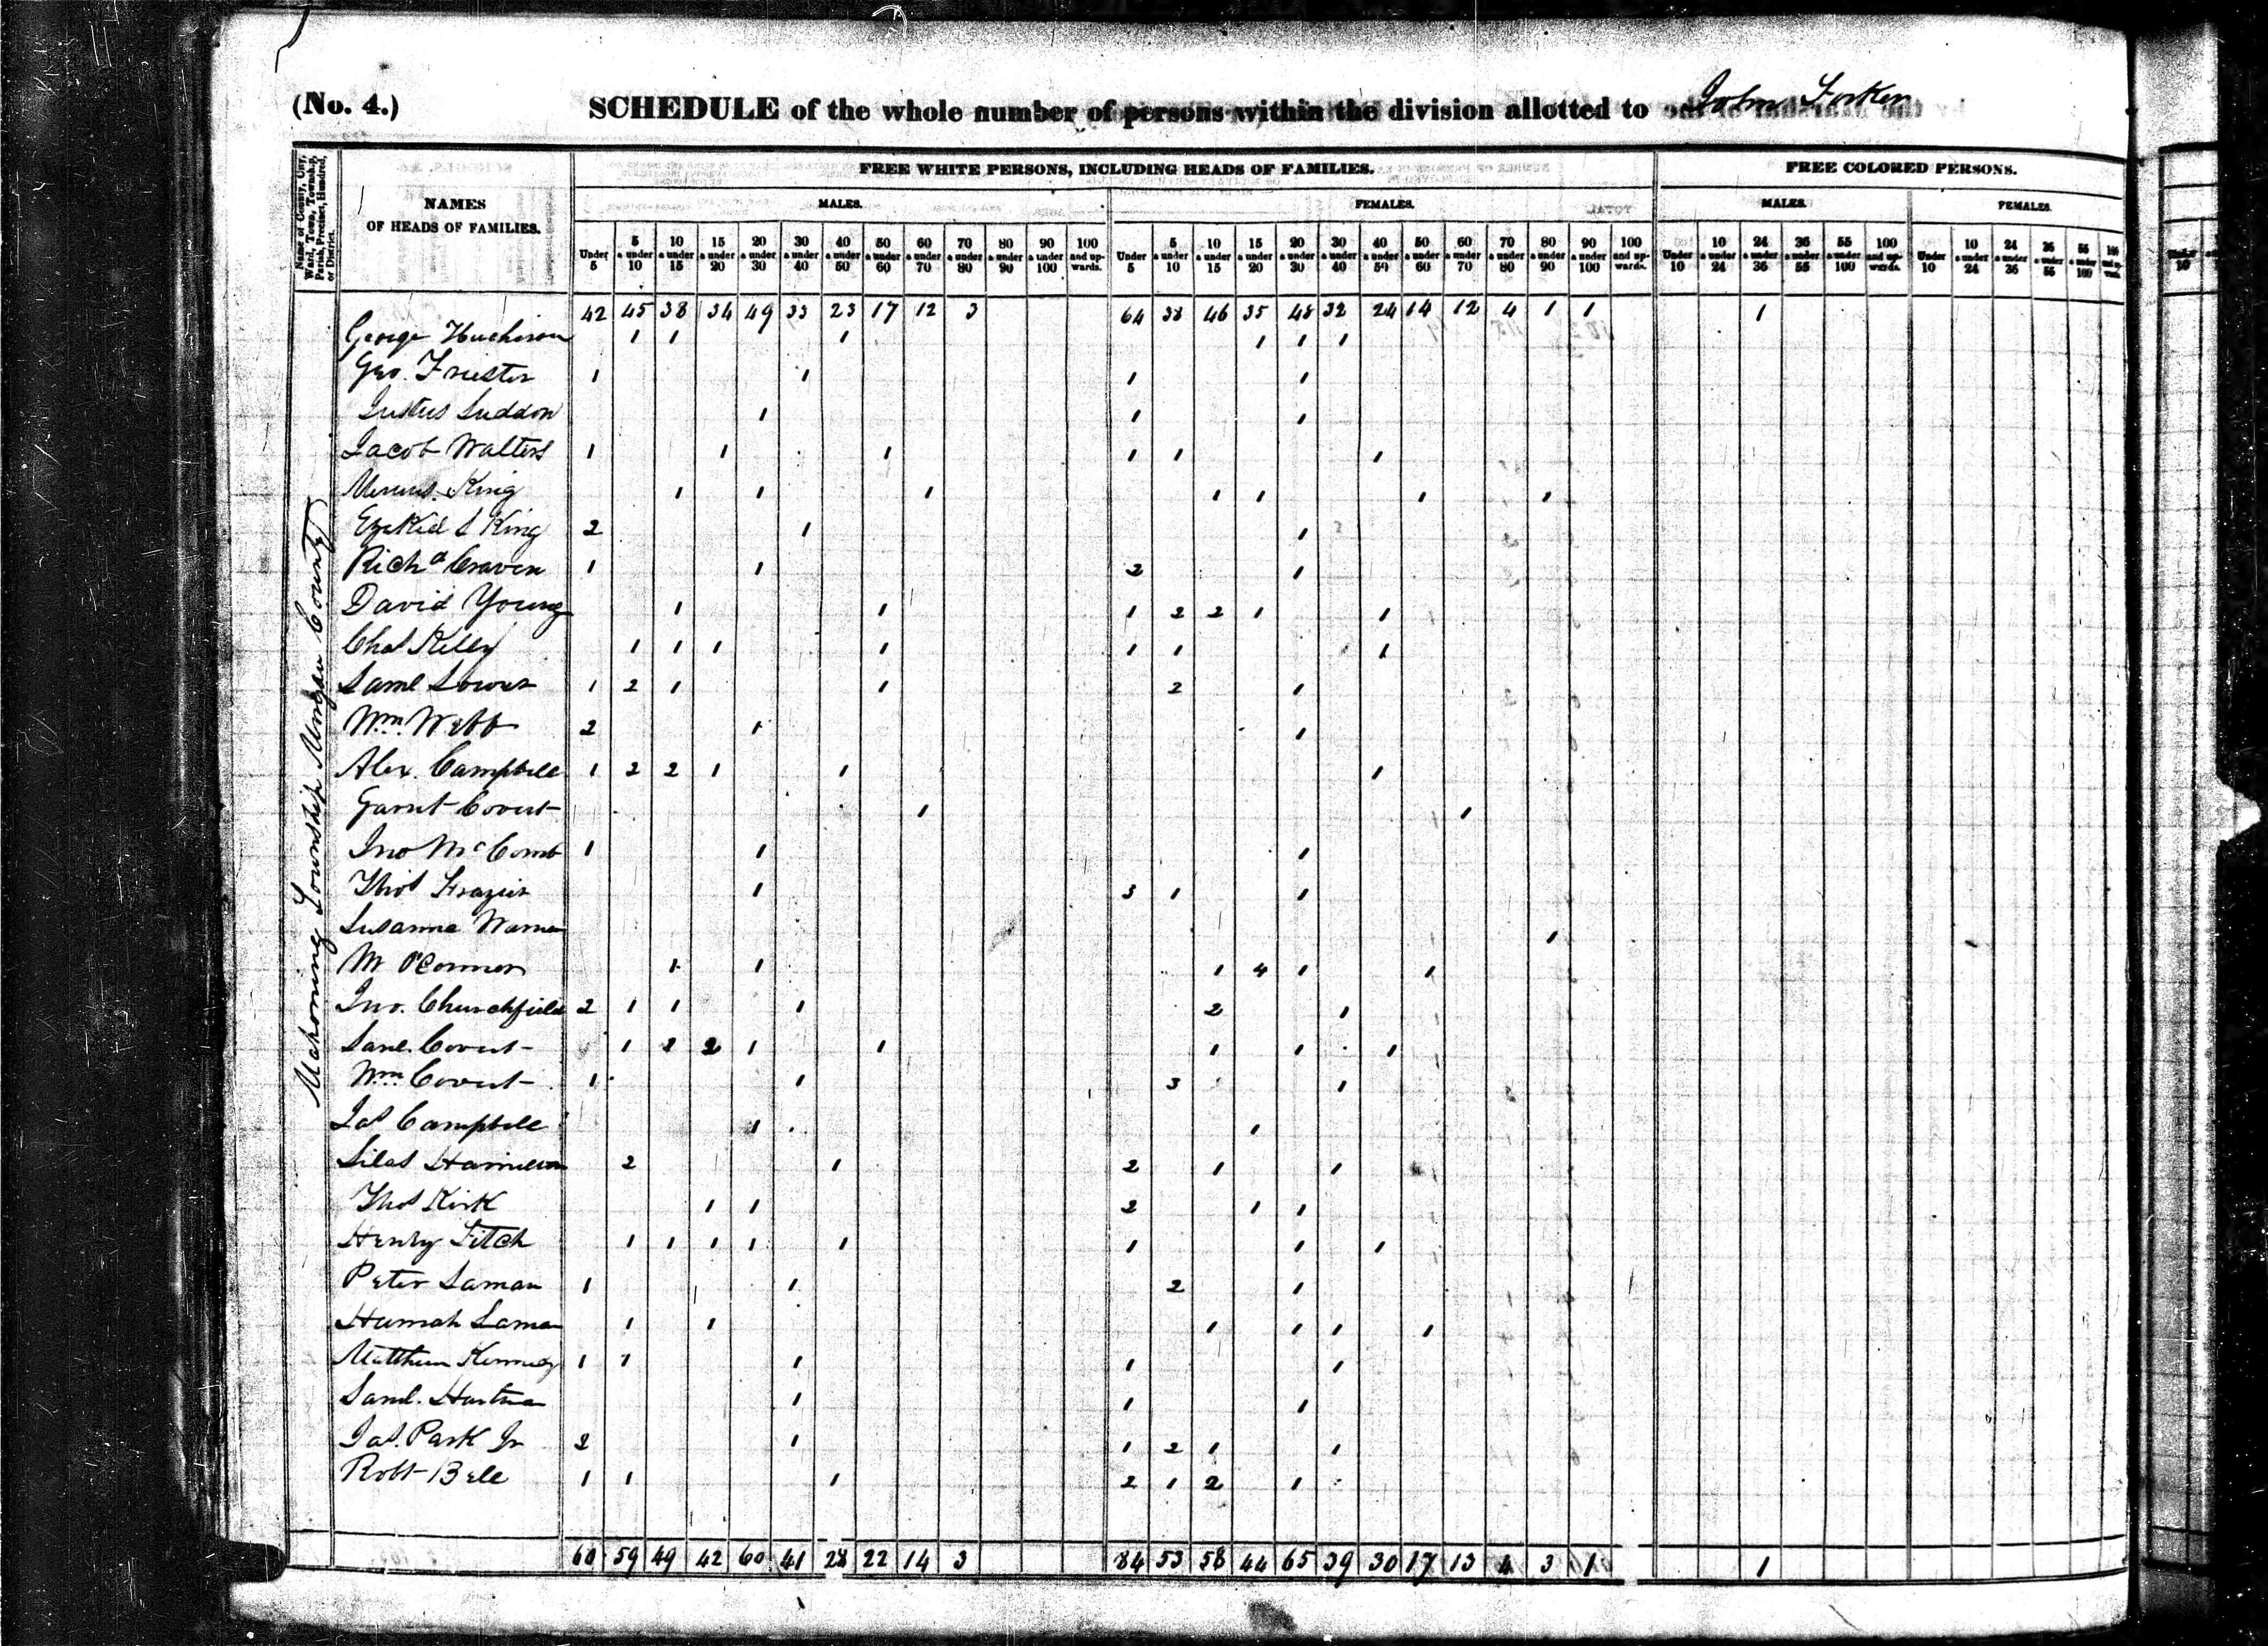 (No. 4.) SCHEDULE of the whole number of persons within the division allotted to John Forker
Name of County, City, Ward, Town, Township, Parish, Precinct, Hundred, or District.
NAMES OF HEADS OF FAMILIES.
FREE WHITE PERSONS, INCLUDING HEADS OF FAMILIES. FREE COLORED PERSONS.
MALES. FEMALES. MALES. FEMALES.
Under 5 5 & under 10 10 & under 15 15 & under 20 20 & under 30 30 & under 40 40 & under 50 50 & under 60 60 & under 70 70 & under 80 80 & under 90 90 & under 100 100 and upwards. Under 5 5 & under 10 10 & under 15 15 & under 20 20 & under 30 30 & under 40 40 & under 50 50 & under 60 60 & under 70 70 & under 80 80 & under 90 90 & under 100 100 and upwards. Under 10 10 & under 24 24 & under 36 36 & under 55 55 & under 100 100 and upwards. Under 10 10 & under 24 24 & under 36 36 & under 55 55 & under 100
Mahoning Township County
42 45 38 34 49 33 23 17 12 3 64 38 46 35 48 32 24 14 12 4 1 1 1
George Huchison 1 1 1 1 1 1
Geo. 1 1 1 1
Justus Luddon 1 1 1
Jacob Walters 1 1 1 1 1 1
King 1 1 1 1 1 1 1
Ezekiel S King 2 1 1
Richd Craven 1 1 2 1
David Young 1 1 1 2 2 1 1
Chas Kelly 1 1 1 1 1 1 1
Saml 1 2 1 1 2 1
Wm Webb 2 1 1
Alex. Campbell 1 2 2 1 1 1
Garrit Covert 1 1
Jno McComb 1 1 1
Thos Frazier 1 3 1 1
Susanna Warner 1
M O'Connor 1 1 1 4 1 1
Jno. Churchfield 2 1 1 1 2 1
Covert 1 2 2 1 1 1 1 1
Wm Covert 1 1 3 1
Jas Campbell 1 1
Silas 2 1 2 1 1
Thos Kirk 1 1 2 1 1
Henry Fitch 1 1 1 1 1 1 1 1
Peter Laman 1 1 2 1
Hannah Laman 1 1 1 1 1 1
Matthew Kennedy 1 1 1 1 1
Saml. Hartman 1 1 1
Jas. Park Jr 2 1 1 2 1 1
Robt Bell 1 1 1 2 1 2 1
60 59 49 42 60 41 28 22 14 3 84 53 58 44 65 39 30 17 13 4 3 1 1